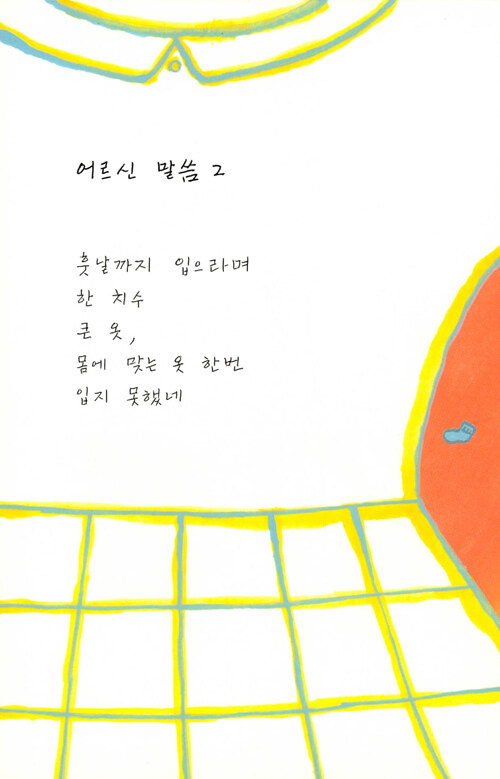 어르신 말씀 2
훗날까지 입으라며
한 치수
큰 옷,
몸에 맞는 옷 한번
입지 못했네